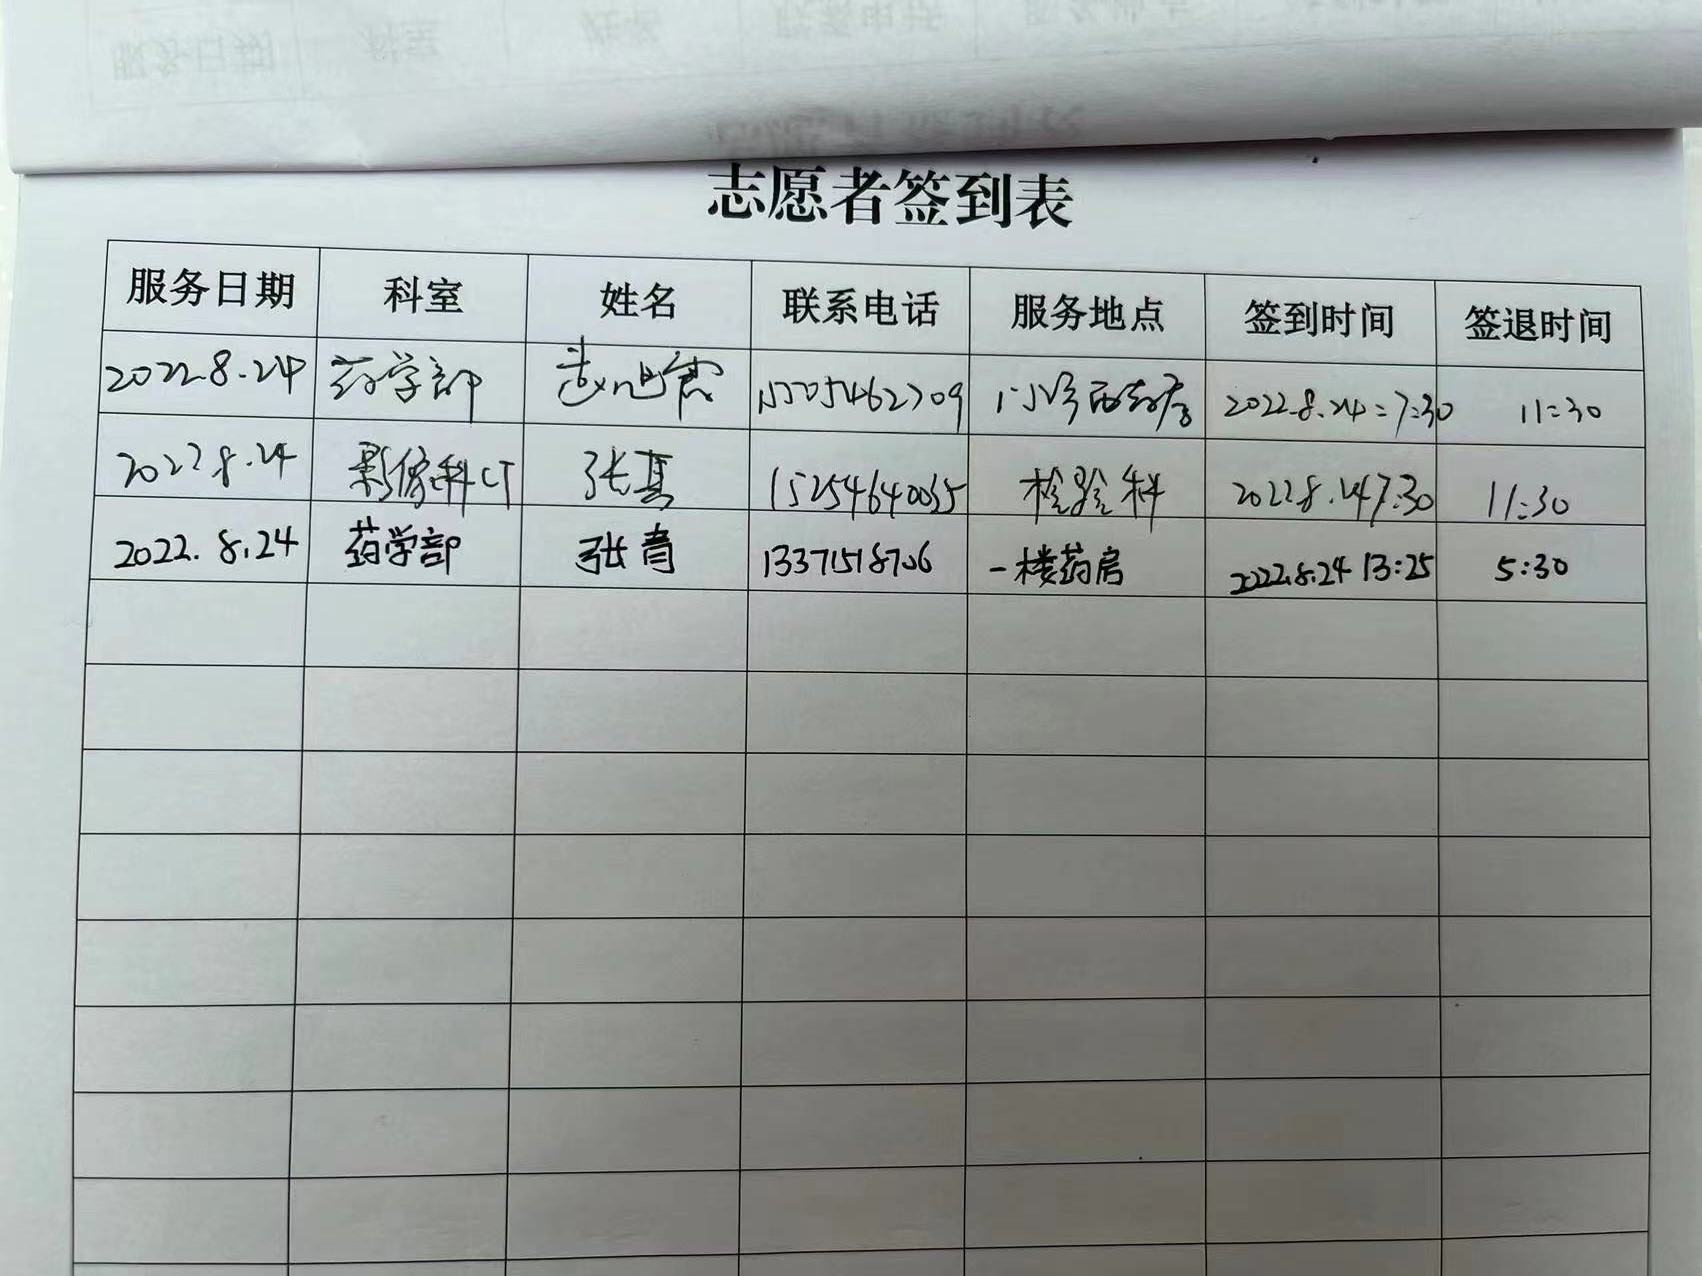 志愿者签到表
服务日期 科室 姓名 联系电话 服务地点 签到时间 签退时间
2022.8.24 药学部 门诊西药房 2022.8.24:7:30 11:30
2022 8.24 影像科CT 张真 15254640035 检验科 2022 8.24 7:30 11:30
2022.8.24 药学部 张青 13371518706 一楼药房 2022.8.24 13:25 5:30